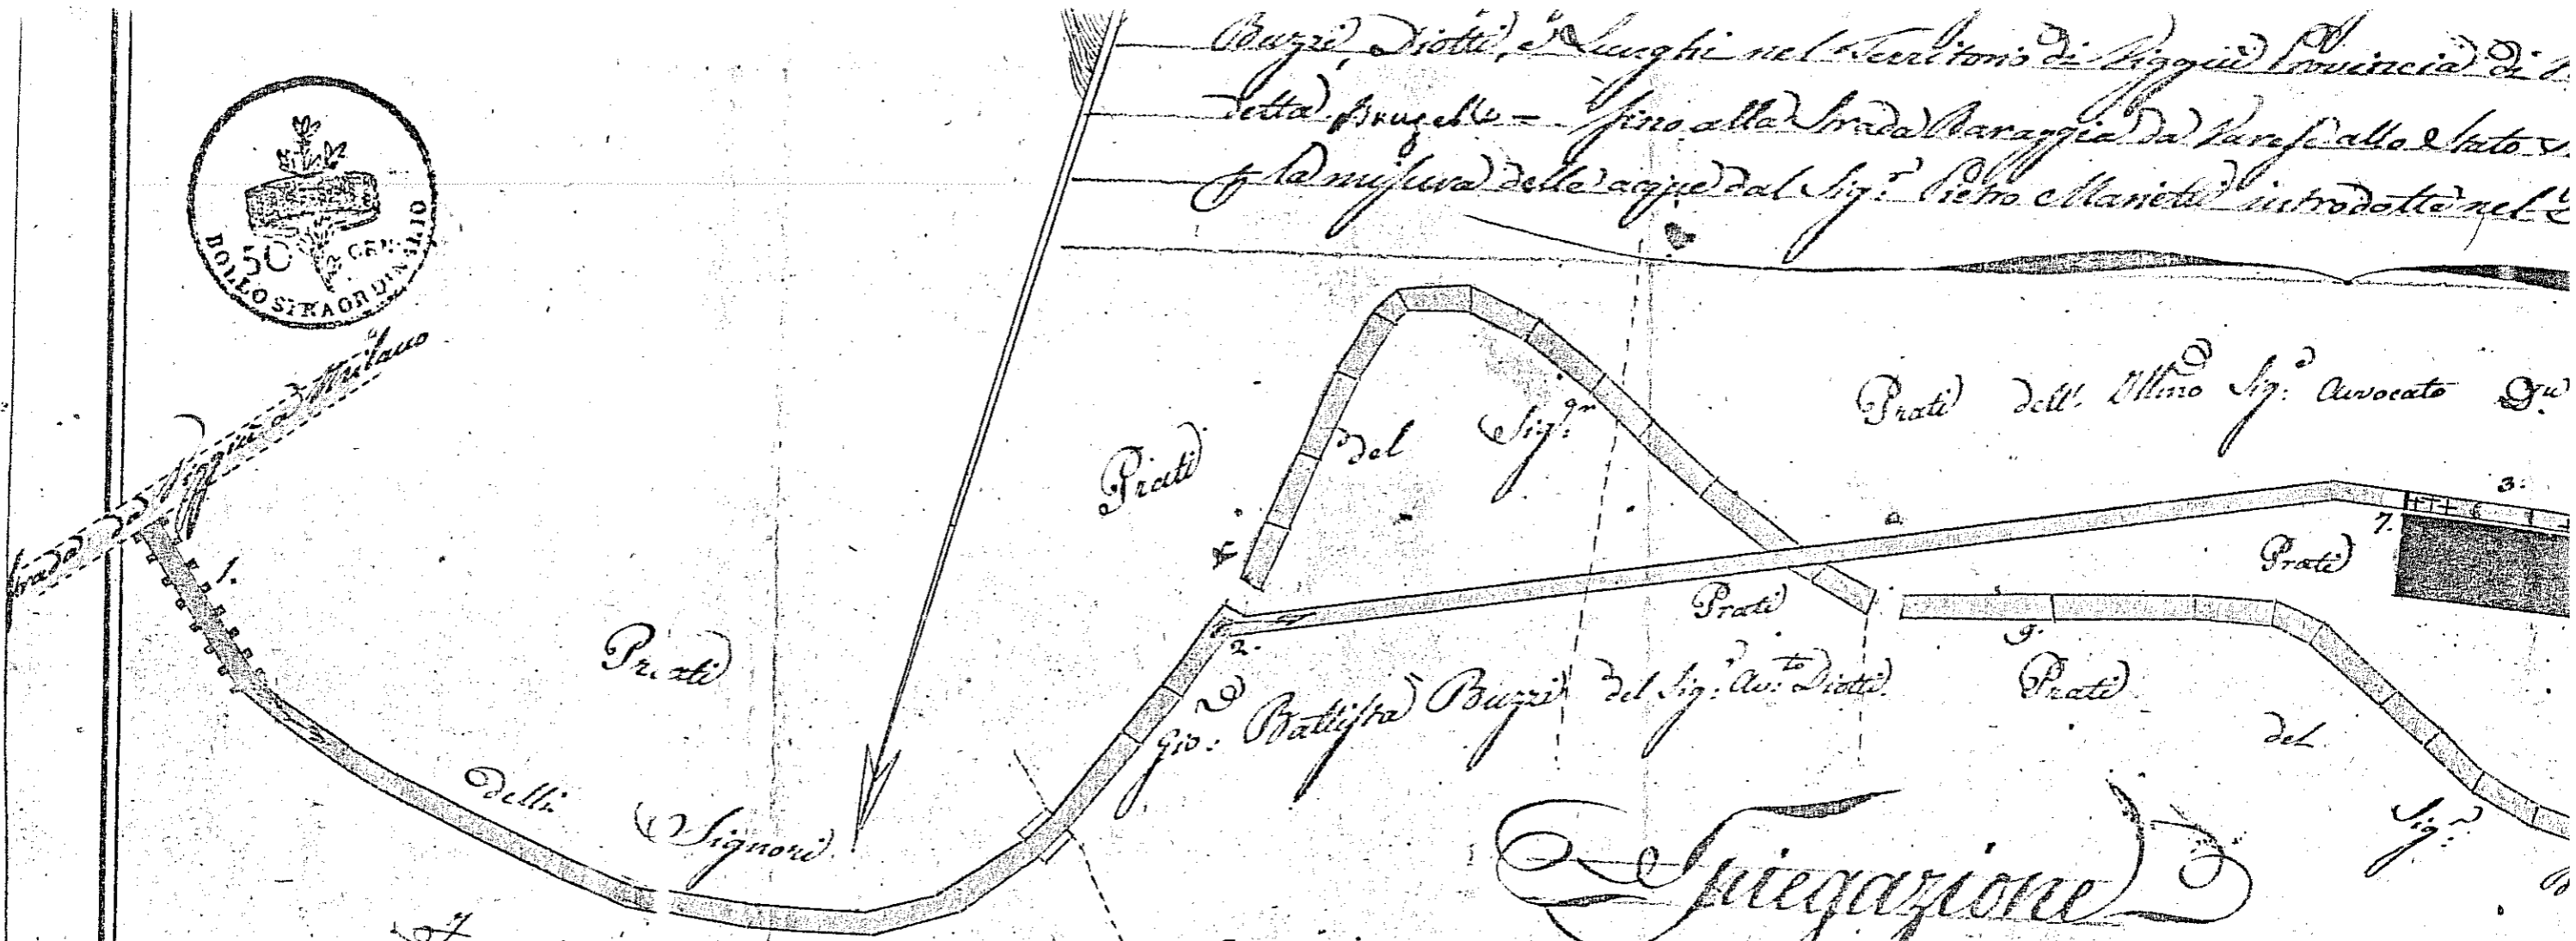 Buzzi, Diotti, e Lunghi nel Territorio di Viggiù Provincia di
detta fino alla Strada Baraggia da Varese allo Stato
la misura delle acque dal Sig.r Pietro introdotte nel
BOLLO STRAORDINARIO
50 CEN.
Strada da Viggiù a Milano
Prati dell' Illmo Sig.r Avvocato
Prati del Sig.r
3.
7.
6
Prati
1.
4.
2.
Prati
9.
Prati
Prati
Gio: Battista Buzzi
del Sig.r Av.to Diotti
del
Sig.r
delli
Signori
Spiegazione